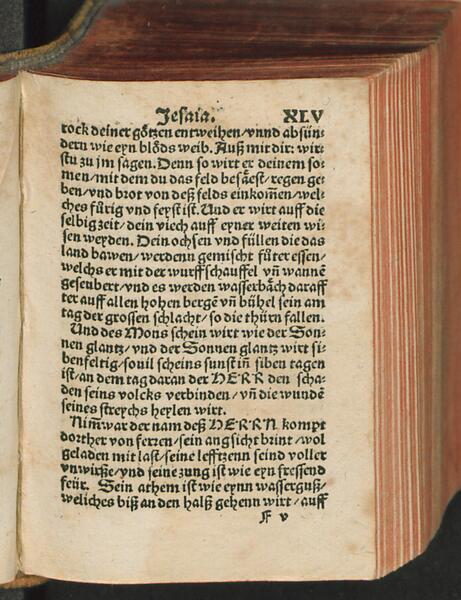 Jesaia. XLV
rock deiner götzen entweihen/vnnd absün-
dern wie eyn blöds weib. Auß mit dir: wir-
stu zu jm sagen. Denn so wirt er deinem so-
men/mit dem du das feld besäest/regen ge-
ben/vnd brot von deß felds einkom̃en/wel-
ches fürig vnd feyst ist. Und er wirt auff die
selbig zeit/dein viech auff eyner weiten wi-
sen weyden. Dein ochsen vnd füllen die das
land bawen/werdenn gemischt fůter essen/
welchs er mit der wurffschauffel vñ wannẽ
geseubert/vnd es werden wasserbäch darauff
ter auff allen hohen bergẽ vñ bühel sein am
tag der grossen schlacht/so die thürn fallen.
Und des Mons schein wirt wie der Son-
nen glantz/vnd der Sonnen glantz wirt si-
benfeltig/souil scheins sunst iñ siben tagen
ist/an dem tag daran der HERR den scha-
den seins volcks verbinden/vñ die wundẽ
seines streychs heylen wirt.
Nim̃ war der nam deß HERRN kompt
dorther von ferren/sein angsicht brint/wol
geladen mit last/seine leffzenn seind voller
vnwirße/vnd seine zung ist wie eyn fressend
feür. Sein athem ist wie eynn wasserguß/
weliches biß an den halß gehenn wirt/auff
F v